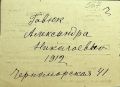 Гавюк
Александра
Николаевна
1912
Черноморская 41